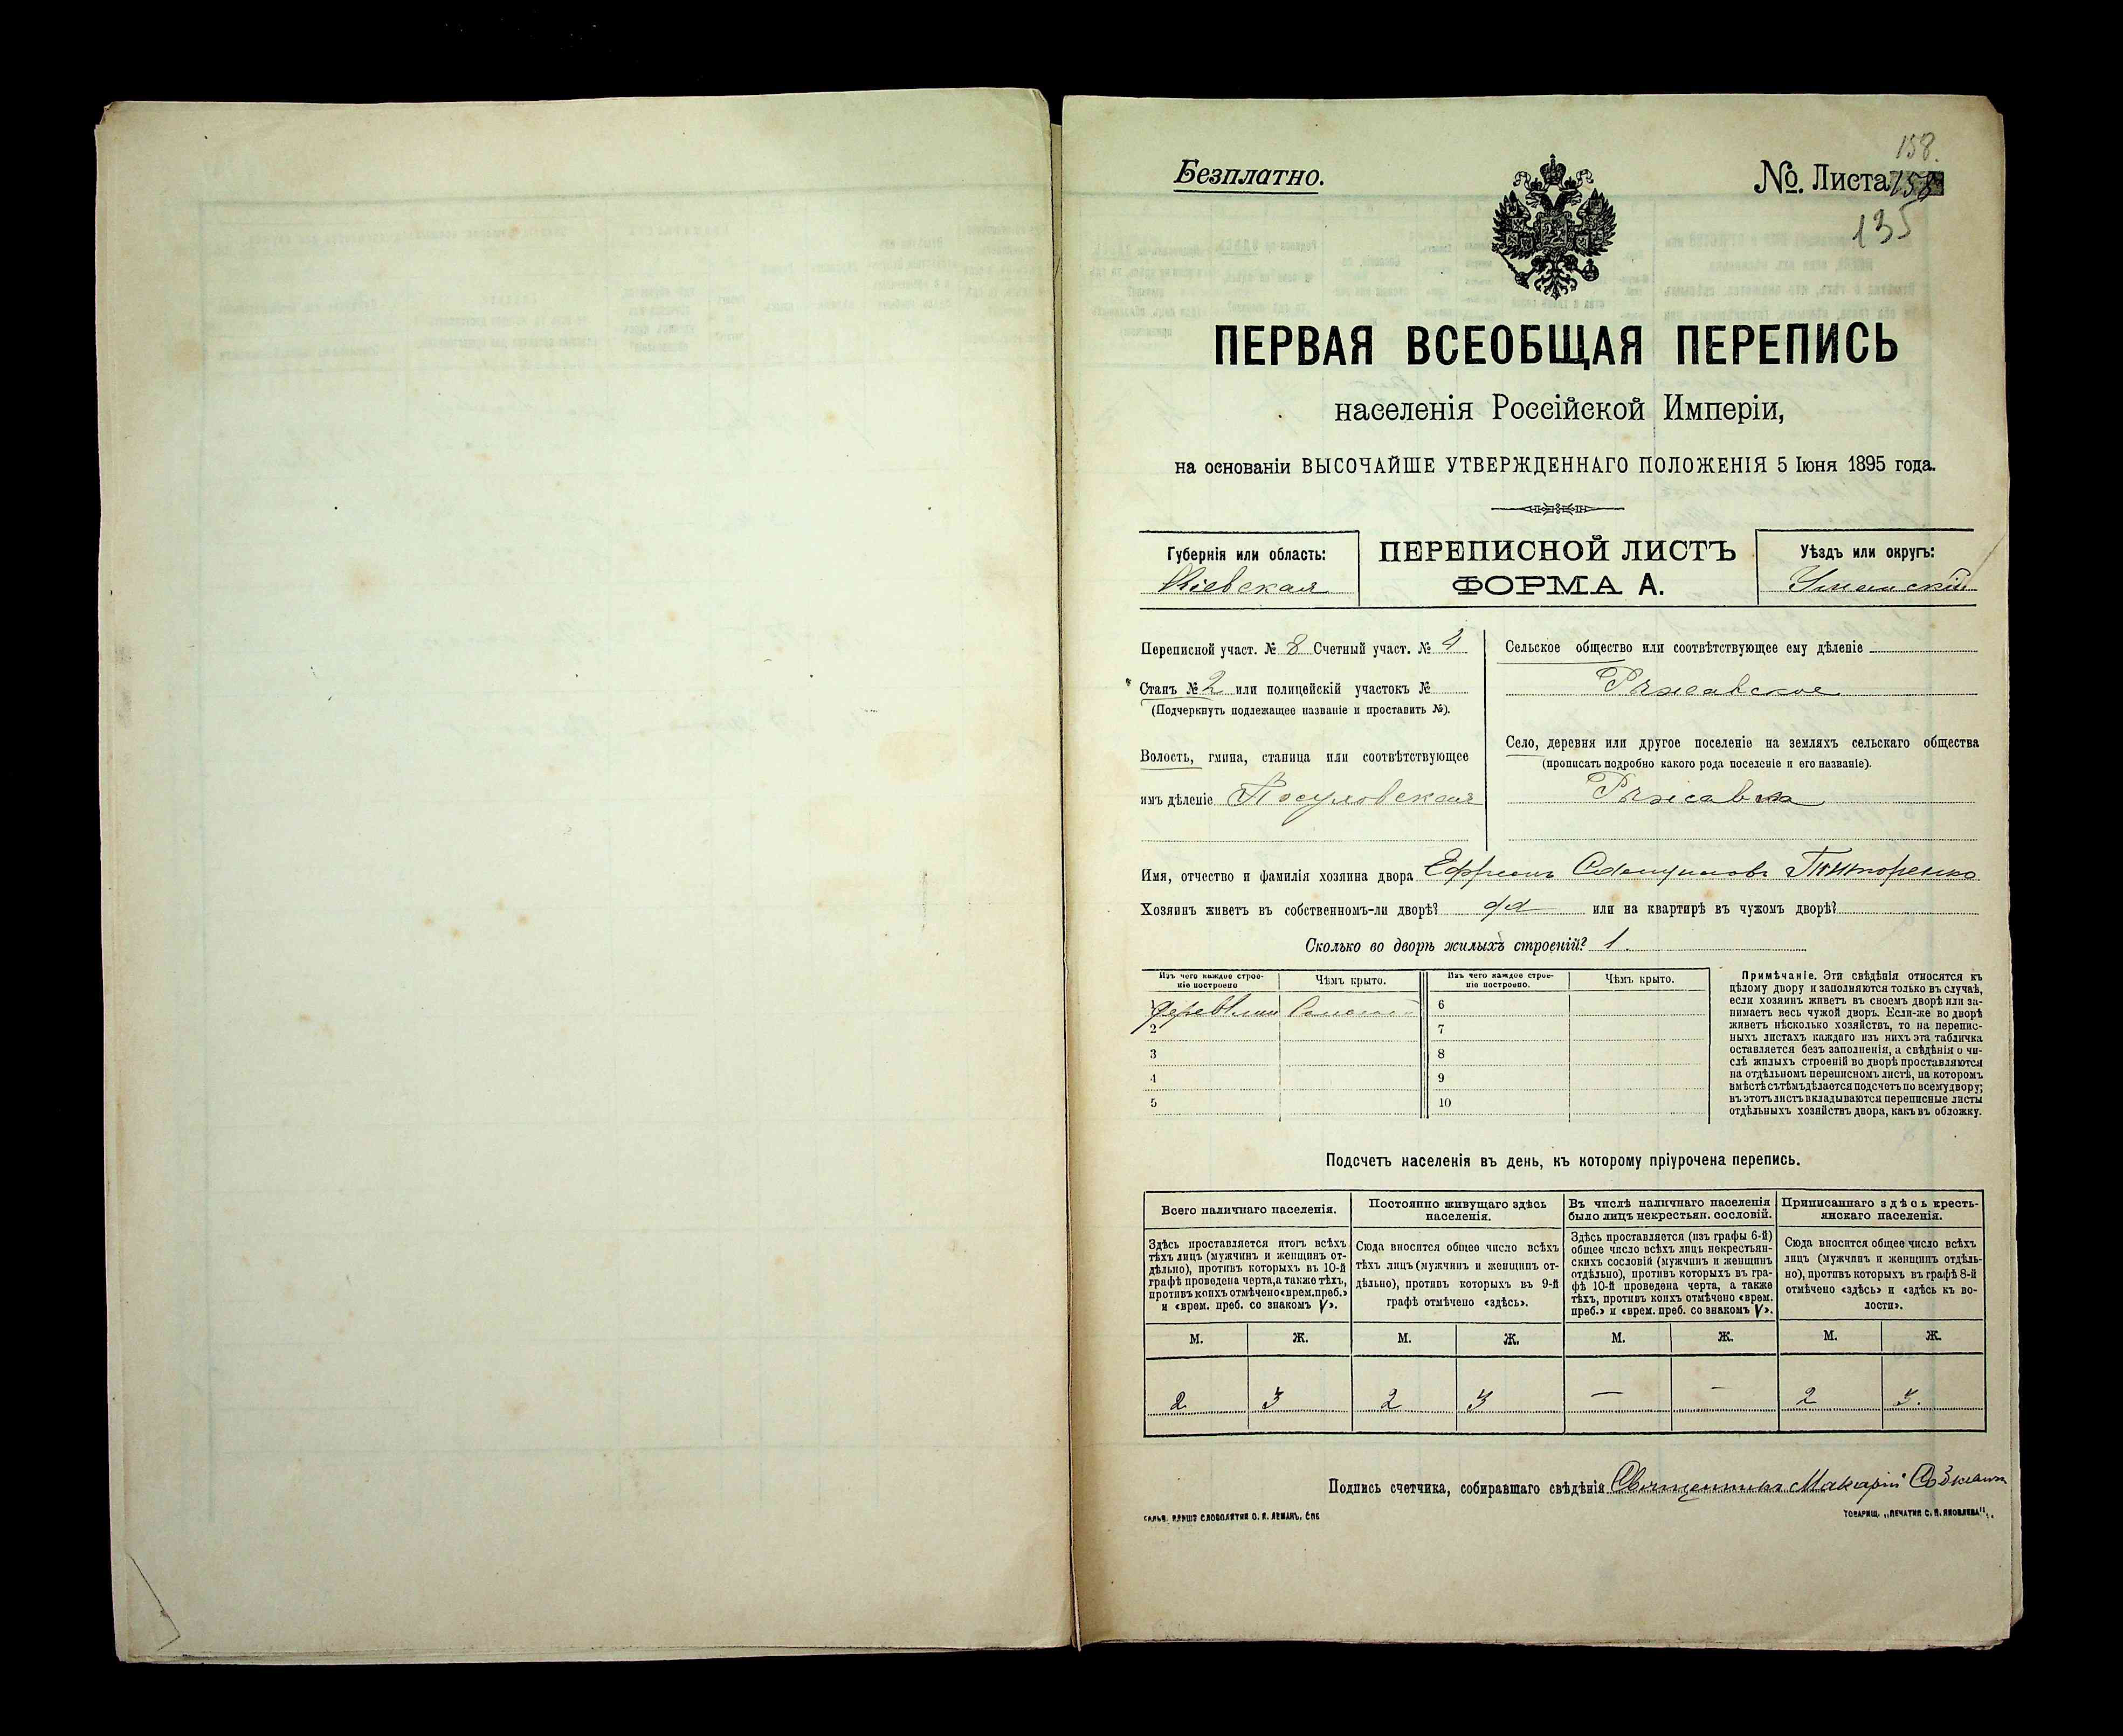 158.
Безплатно.
№. Листа 158
135
ПЕРВАЯ ВСЕОБЩАЯ ПЕРЕПИСЬ
населенія Россійской Имперіи,
на основаніи ВЫСОЧАЙШЕ УТВЕРЖДЕННАГО ПОЛОЖЕНІЯ 5 Іюня 1895 года.
Губернія или область:
Кіевская
ПЕРЕПИСНОЙ ЛИСТЪ
ФОРМА А.
Уѣздъ или округъ:
Уманскій
Переписной участ. № 8 Счетный участ. № 4
Станъ № 2 или полицейскій участокъ №
(Подчеркнуть подлежащее названіе и проставить №).
Волость, гмина, станица или соотвѣтствующее
имъ дѣленіе
Сельское общество или соотвѣтствующее ему дѣленіе
Ряжавское
Село, деревня или другое поселеніе на земляхъ сельскаго общества
(прописать подробно какого рода поселеніе и его названіе).
Ряжавка
Имя, отчество и фамилія хозяина двора Ефремъ
Хозяинъ живетъ въ собственномъ-ли дворѣ? да или на квартирѣ въ чужомъ дворѣ?
Сколько во дворѣ жилыхъ строеній? 1.
Изъ чего каждое строе-
ніе построено
Чѣмъ крыто.
Изъ чего каждое строе-
ніе построено.
Чѣмъ крыто.
1
2
3
4
5
6
7
8
9
10
Примѣчаніе. Эти свѣдѣнія относятся къ
цѣлому двору и заполняются только въ случаѣ,
если хозяинъ живетъ въ своемъ дворѣ или за-
нимаетъ весь чужой дворъ. Если-же во дворѣ
живетъ нѣсколько хозяйствъ, то на перепис-
ныхъ листахъ каждаго изъ нихъ эта табличка
оставляется безъ заполненія, а свѣдѣнія о чи-
слѣ жилыхъ строеній во дворѣ проставляются
на отдѣльномъ переписномъ листѣ, на которомъ
вмѣстѣ съ тѣмъ дѣлается подсчетъ по всему двору;
въ этотъ листъ вкладываются переписные листы
отдѣльныхъ хозяйствъ двора, какъ въ обложку.
Подсчетъ населенія въ день, къ которому пріурочена перепись.
Всего наличнаго населенія.
Постоянно живущаго здѣсь
населенія.
Въ числѣ наличнаго населенія
было лицъ некрестьян. сословій.
Приписаннаго здѣсь кресть-
янскаго населенія.
Здѣсь проставляется итогъ всѣхъ
тѣхъ лицъ (мужчинъ и женщинъ от-
дѣльно), противъ которыхъ въ 10-й
графѣ проведена черта, а также тѣхъ,
противъ коихъ отмѣчено «врем. преб.»
и «врем. преб. со знакомъ V».
Сюда вносится общее число всѣхъ
тѣхъ лицъ (мужчинъ и женщинъ от-
дѣльно), противъ которыхъ въ 9-й
графѣ отмѣчено «здѣсь».
Здѣсь проставляется (изъ графы 6-й)
общее число всѣхъ лицъ некрестьян-
скихъ сословій (мужчинъ и женщинъ
отдѣльно), противъ которыхъ въ гра-
фѣ 10-й проведена черта, а также
тѣхъ, противъ коихъ отмѣчено «врем.
преб.» и «врем. преб. со знакомъ V».
Сюда вносится общее число всѣхъ
лицъ (мужчинъ и женщинъ отдѣль-
но), противъ которыхъ въ графѣ 8-й
отмѣчено «здѣсь» и «здѣсь къ во-
лости».
М. Ж. М. Ж. М. Ж. М. Ж.
2 3 2 3 — — 2 3.
Подпись счетчика, собиравшаго свѣдѣнія Священникъ Макарій
СЛОВОЛИТНИ О. И. ЛЕМАНЪ, СПБ
ТОВАРИЩ. „ПЕЧАТНЯ С. П. ЯКОВЛЕВА".